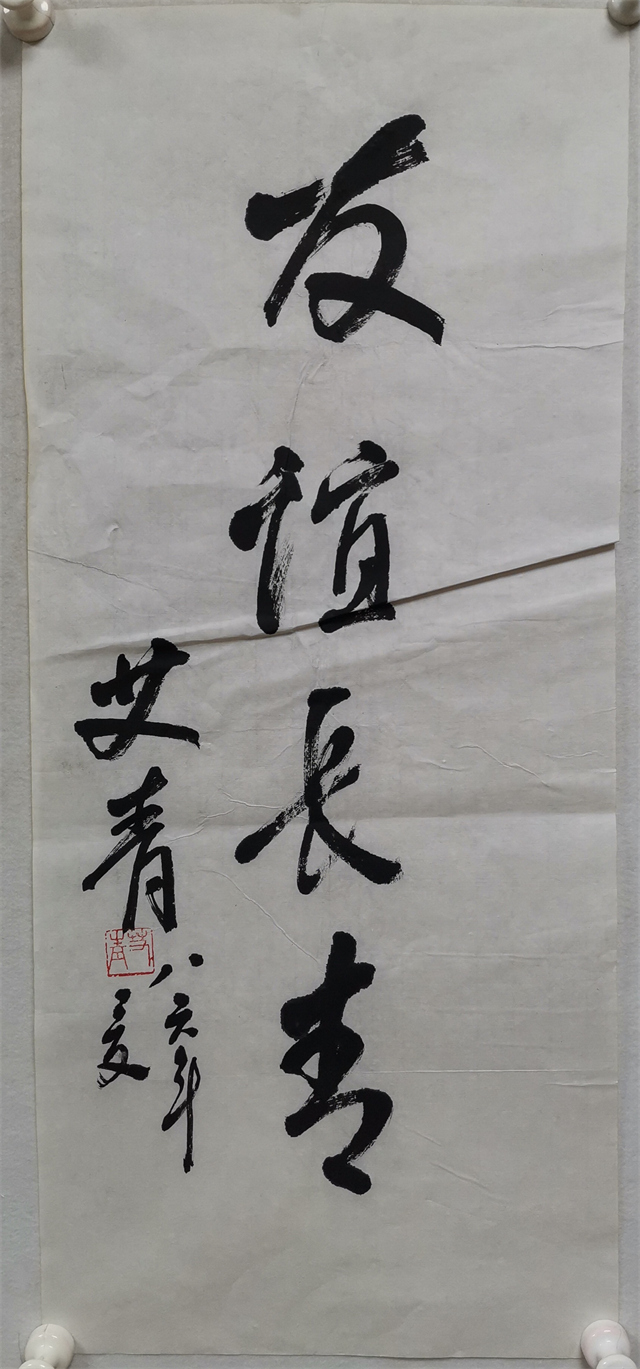 友谊长青
艾青
八六年
夏
艾青